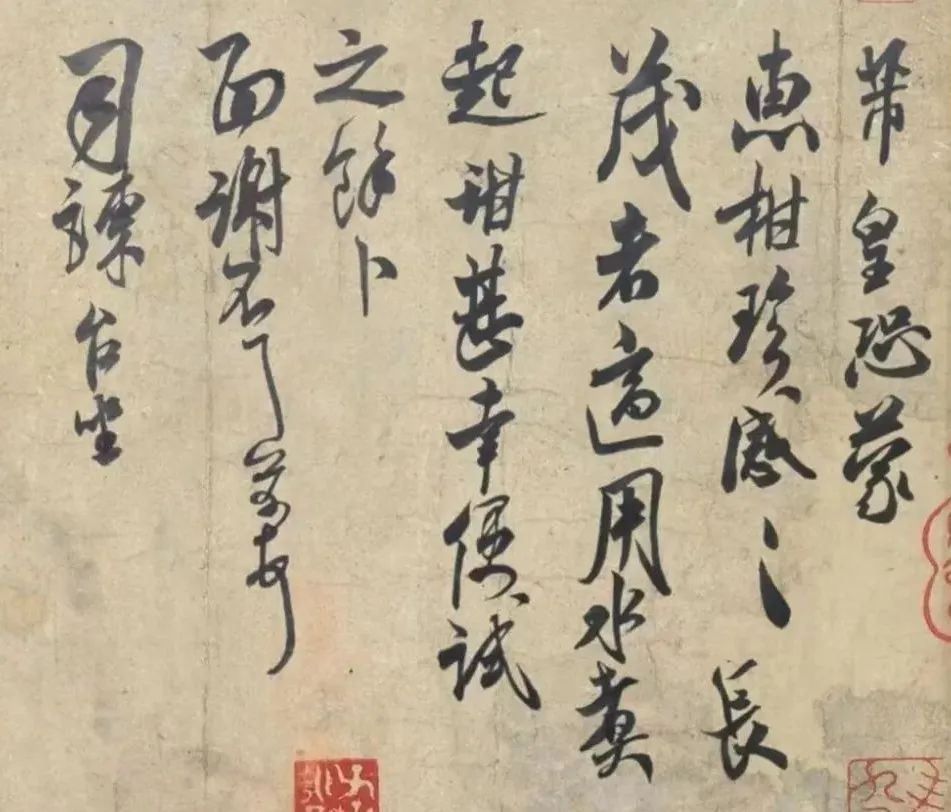 芾皇恐蒙
惠柑珍感々長
茂者適用水煮
起甜甚幸便試
之餘卜
面謝不一芾頓首
司諫台坐